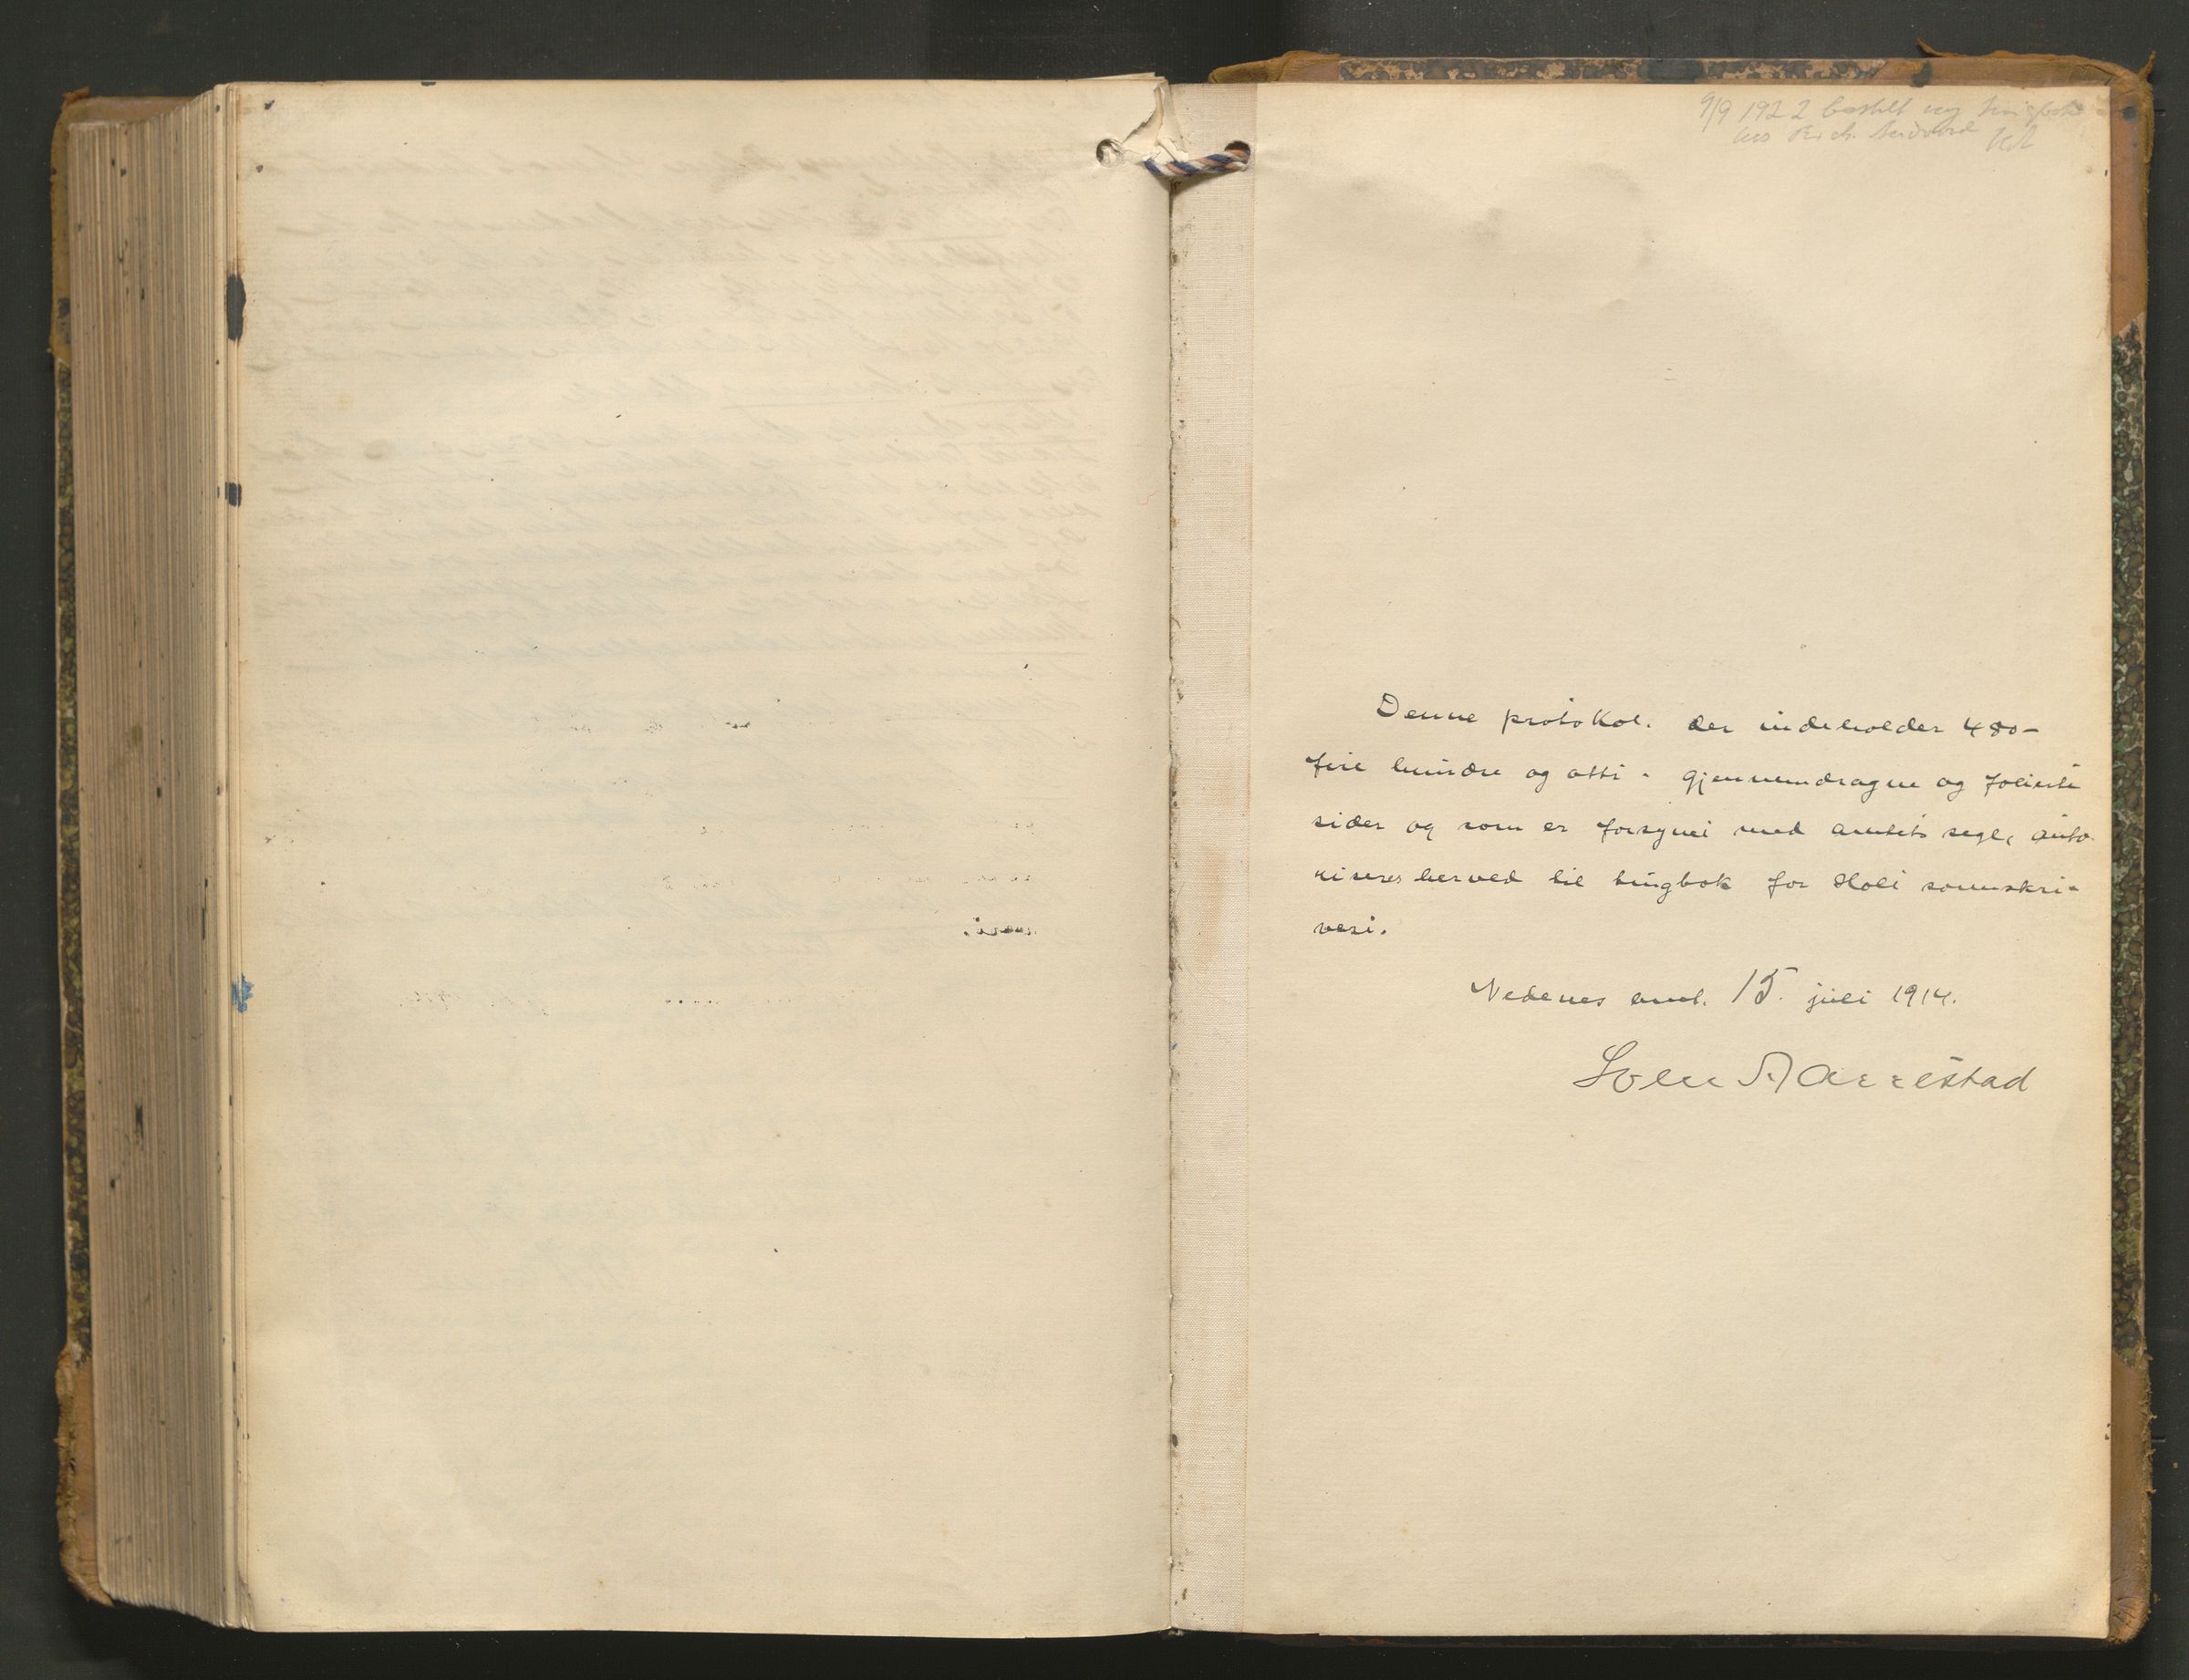 9/9 1922 bestilt ny tingbok
hos Rich. Andvord
Denne protokol. der indeholder 480-
fire hundre og otti - gjennemdragne og folierte
sider og som er forsynet med amtets segl, auto-
riseres herved til tingbok for Holt sorenskri-
veri.
Nedenes amt. 15. juli 1914.
Sven Aarrestad